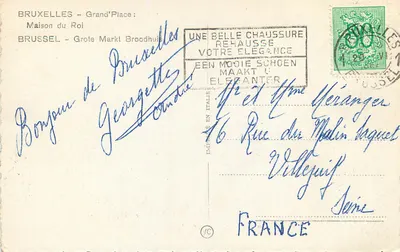 BRUXELLES - Grand'Place:
Maison du Roi
BRUSSEL - Grote Markt Broodhuis
UNE BELLE CHAUSSURE
REHAUSSE
VOTRE ELEGANCE
EEN MOOIE SCHOEN
MAAKT U
ELEGANTER
Bonjour de Bruxelles
Georgette
André
Mr et Mme Méranger
16 Rue du Malin Jaquet
Villejuif
Seine
FRANCE